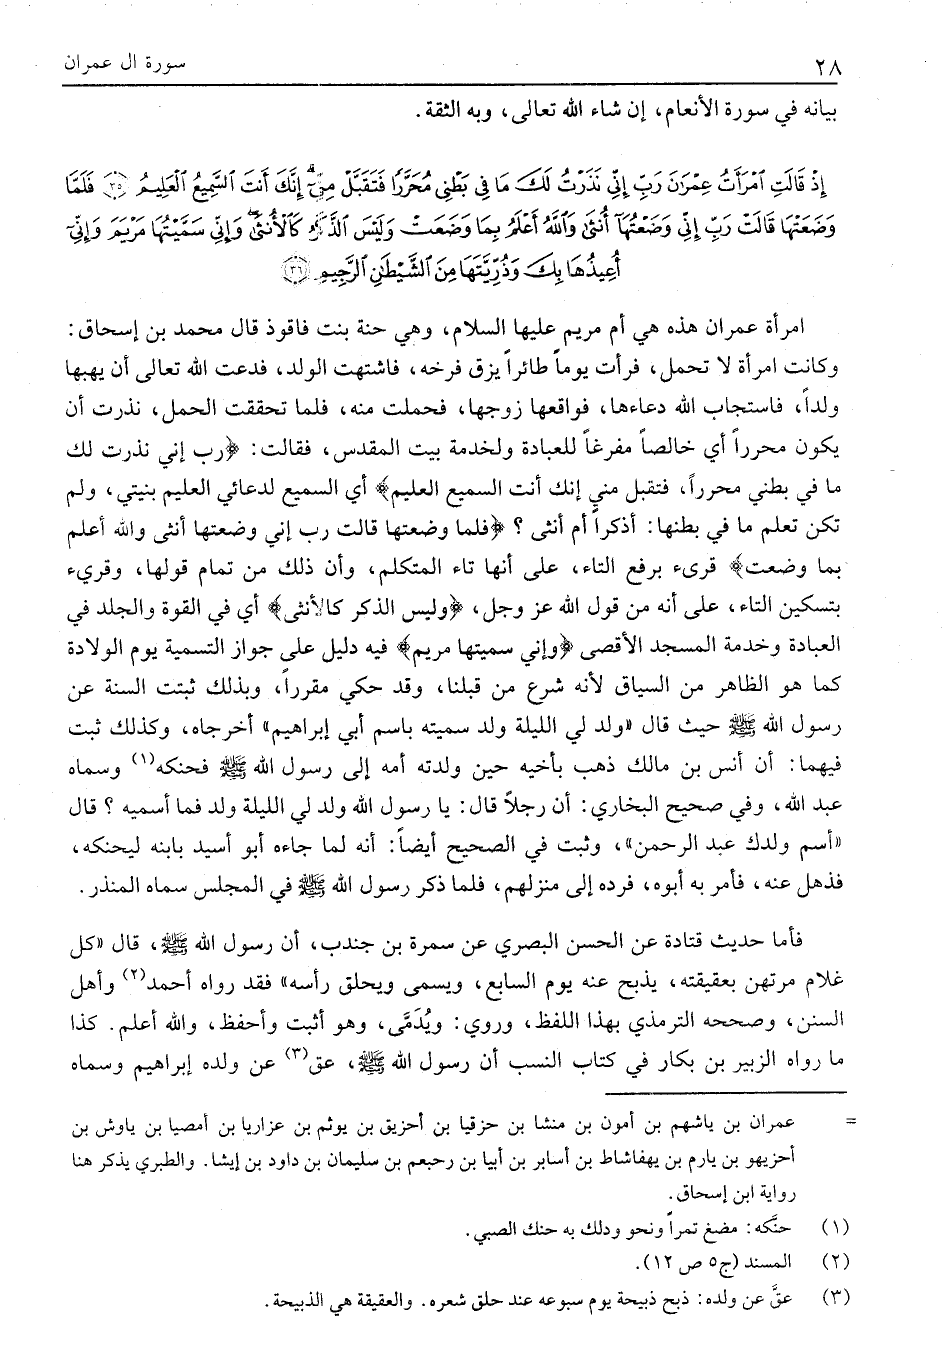 ٢٨
سورة ال عمران
بيانه في سورة الأنعام، إن شاء الله تعالى، وبه الثقة.
إِذْ قَالَتِ ٱمْرَأَتُ عِمْرَٰنَ رَبِّ إِنِّي نَذَرْتُ لَكَ مَا فِي بَطْنِي مُحَرَّرًا فَتَقَبَّلْ مِنِّيٓ ۖ إِنَّكَ أَنتَ ٱلسَّمِيعُ ٱلْعَلِيمُ ﴿٣٥﴾ فَلَمَّا
وَضَعَتْهَا قَالَتْ رَبِّ إِنِّي وَضَعْتُهَآ أُنثَىٰ وَٱللَّهُ أَعْلَمُ بِمَا وَضَعَتْ وَلَيْسَ ٱلذَّكَرُ كَٱلْأُنثَىٰ ۖ وَإِنِّي سَمَّيْتُهَا مَرْيَمَ وَإِنِّيٓ
أُعِيذُهَا بِكَ وَذُرِّيَّتَهَا مِنَ ٱلشَّيْطَٰنِ ٱلرَّجِيمِ ﴿٣٦﴾
امرأة عمران هذه هي أم مريم عليها السلام، وهي حنة بنت فاقوذ قال محمد بن إسحاق:
وكانت امرأة لا تحمل، فرأت يوماً طائراً يزق فرخه، فاشتهت الولد، فدعت الله تعالى أن يهبها
ولداً، فاستجاب الله دعاءها، فواقعها زوجها، فحملت منه، فلما تحققت الحمل، نذرت أن
يكون محرراً أي خالصاً مفرغاً للعبادة ولخدمة بيت المقدس، فقالت: ﴿رب إني نذرت لك
ما في بطني محرراً، فتقبل مني إنك أنت السميع العليم﴾ أي السميع لدعائي العليم بنيتي، ولم
تكن تعلم ما في بطنها: أذكراً أم أنثى؟ ﴿فلما وضعتها قالت رب إني وضعتها أنثى والله أعلم
بما وضعت﴾ قرىء برفع التاء، على أنها تاء المتكلم، وأن ذلك من تمام قولها، وقريء
بتسكين التاء، على أنه من قول الله عز وجل، ﴿وليس الذكر كالأنثى﴾ أي في القوة والجلد في
العبادة وخدمة المسجد الأقصى ﴿وإني سميتها مريم﴾ فيه دليل على جواز التسمية يوم الولادة
كما هو الظاهر من السياق لأنه شرع من قبلنا، وقد حكي مقرراً، وبذلك ثبتت السنة عن
رسول الله ﷺ حيث قال «ولد لي الليلة ولد سميته باسم أبي إبراهيم» أخرجاه، وكذلك ثبت
فيهما: أن أنس بن مالك ذهب بأخيه حين ولدته أمه إلى رسول الله ﷺ فحنكه(١) وسماه
عبد الله، وفي صحيح البخاري: أن رجلاً قال: يا رسول الله ولد لي الليلة ولد فما أسميه؟ قال
«أسم ولدك عبد الرحمن»، وثبت في الصحيح أيضاً: أنه لما جاءه أبو أسيد بابنه ليحنكه،
فذهل عنه، فأمر به أبوه، فرده إلى منزلهم، فلما ذكر رسول الله ﷺ في المجلس سماه المنذر.
فأما حديث قتادة عن الحسن البصري عن سمرة بن جندب، أن رسول الله ﷺ، قال «كل
غلام مرتهن بعقيقته، يذبح عنه يوم السابع، ويسمى ويحلق رأسه» فقد رواه أحمد(٢) وأهل
السنن، وصححه الترمذي بهذا اللفظ، وروي: ويُدَمَّى، وهو أثبت وأحفظ، والله أعلم. كذا
ما رواه الزبير بن بكار في كتاب النسب أن رسول الله ﷺ، عق(٣) عن ولده إبراهيم وسماه
= عمران بن ياشهم بن أمون بن منشا بن حزقيا بن أحزيق بن يوثم بن عزاريا بن أمصيا بن ياوش بن
أحزيهو بن يارم بن يهفاشاط بن أسابر بن أبيا بن رحبعم بن سليمان بن داود بن إيشا. والطبري يذكر هنا
رواية ابن إسحاق.
(١) حنَّكه: مضغ تمراً ونحو ودلك به حنك الصبي.
(٢) المسند (ج٥ ص ١٢).
(٣) عقَّ عن ولده: ذبح ذبيحة يوم سبوعه عند حلق شعره. والعقيقة هي الذبيحة.